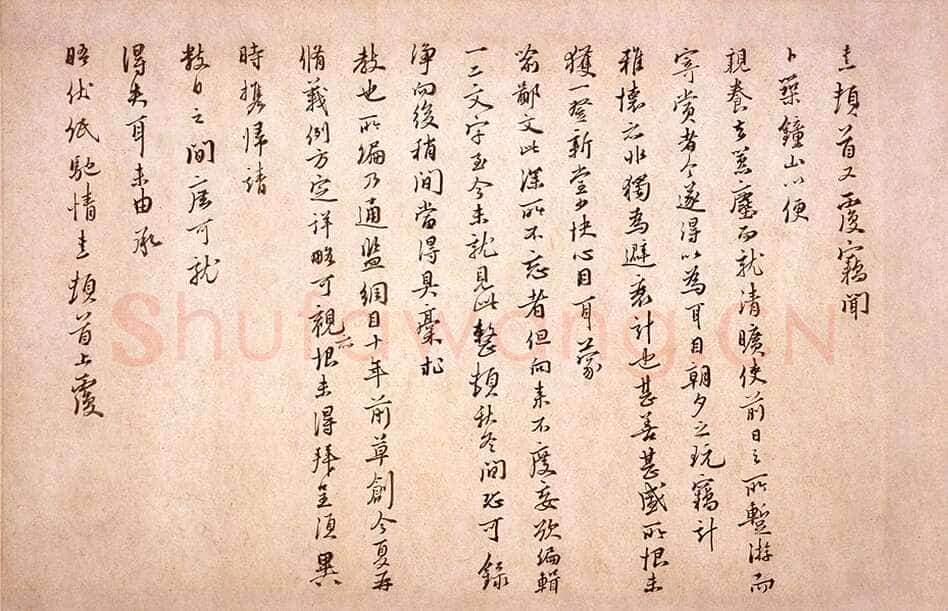 熹頓首又覆竊聞
卜築鐘山以便
親養去囂塵而就清曠使前日之所暫游而
寄賞者今遂得以為耳目朝夕之玩竊計
雅懷亦非獨為避衰計也甚善甚盛所恨未
獲一登新堂少快心目耳蒙
喻鄙文此深所不忘者但向來不度妄欲編輯
一二文字至今未就見此整頓秋冬間恐可錄
淨向後稍間當得具稾求
教也所編乃通鑑綱目十年前草創今夏再
脩義例方定詳略可觀亦恨未得拜呈須異
時攜歸請
數日之間庶可就
得失耳未由承
晤伏紙馳情熹頓首上覆
Shufawang.CN